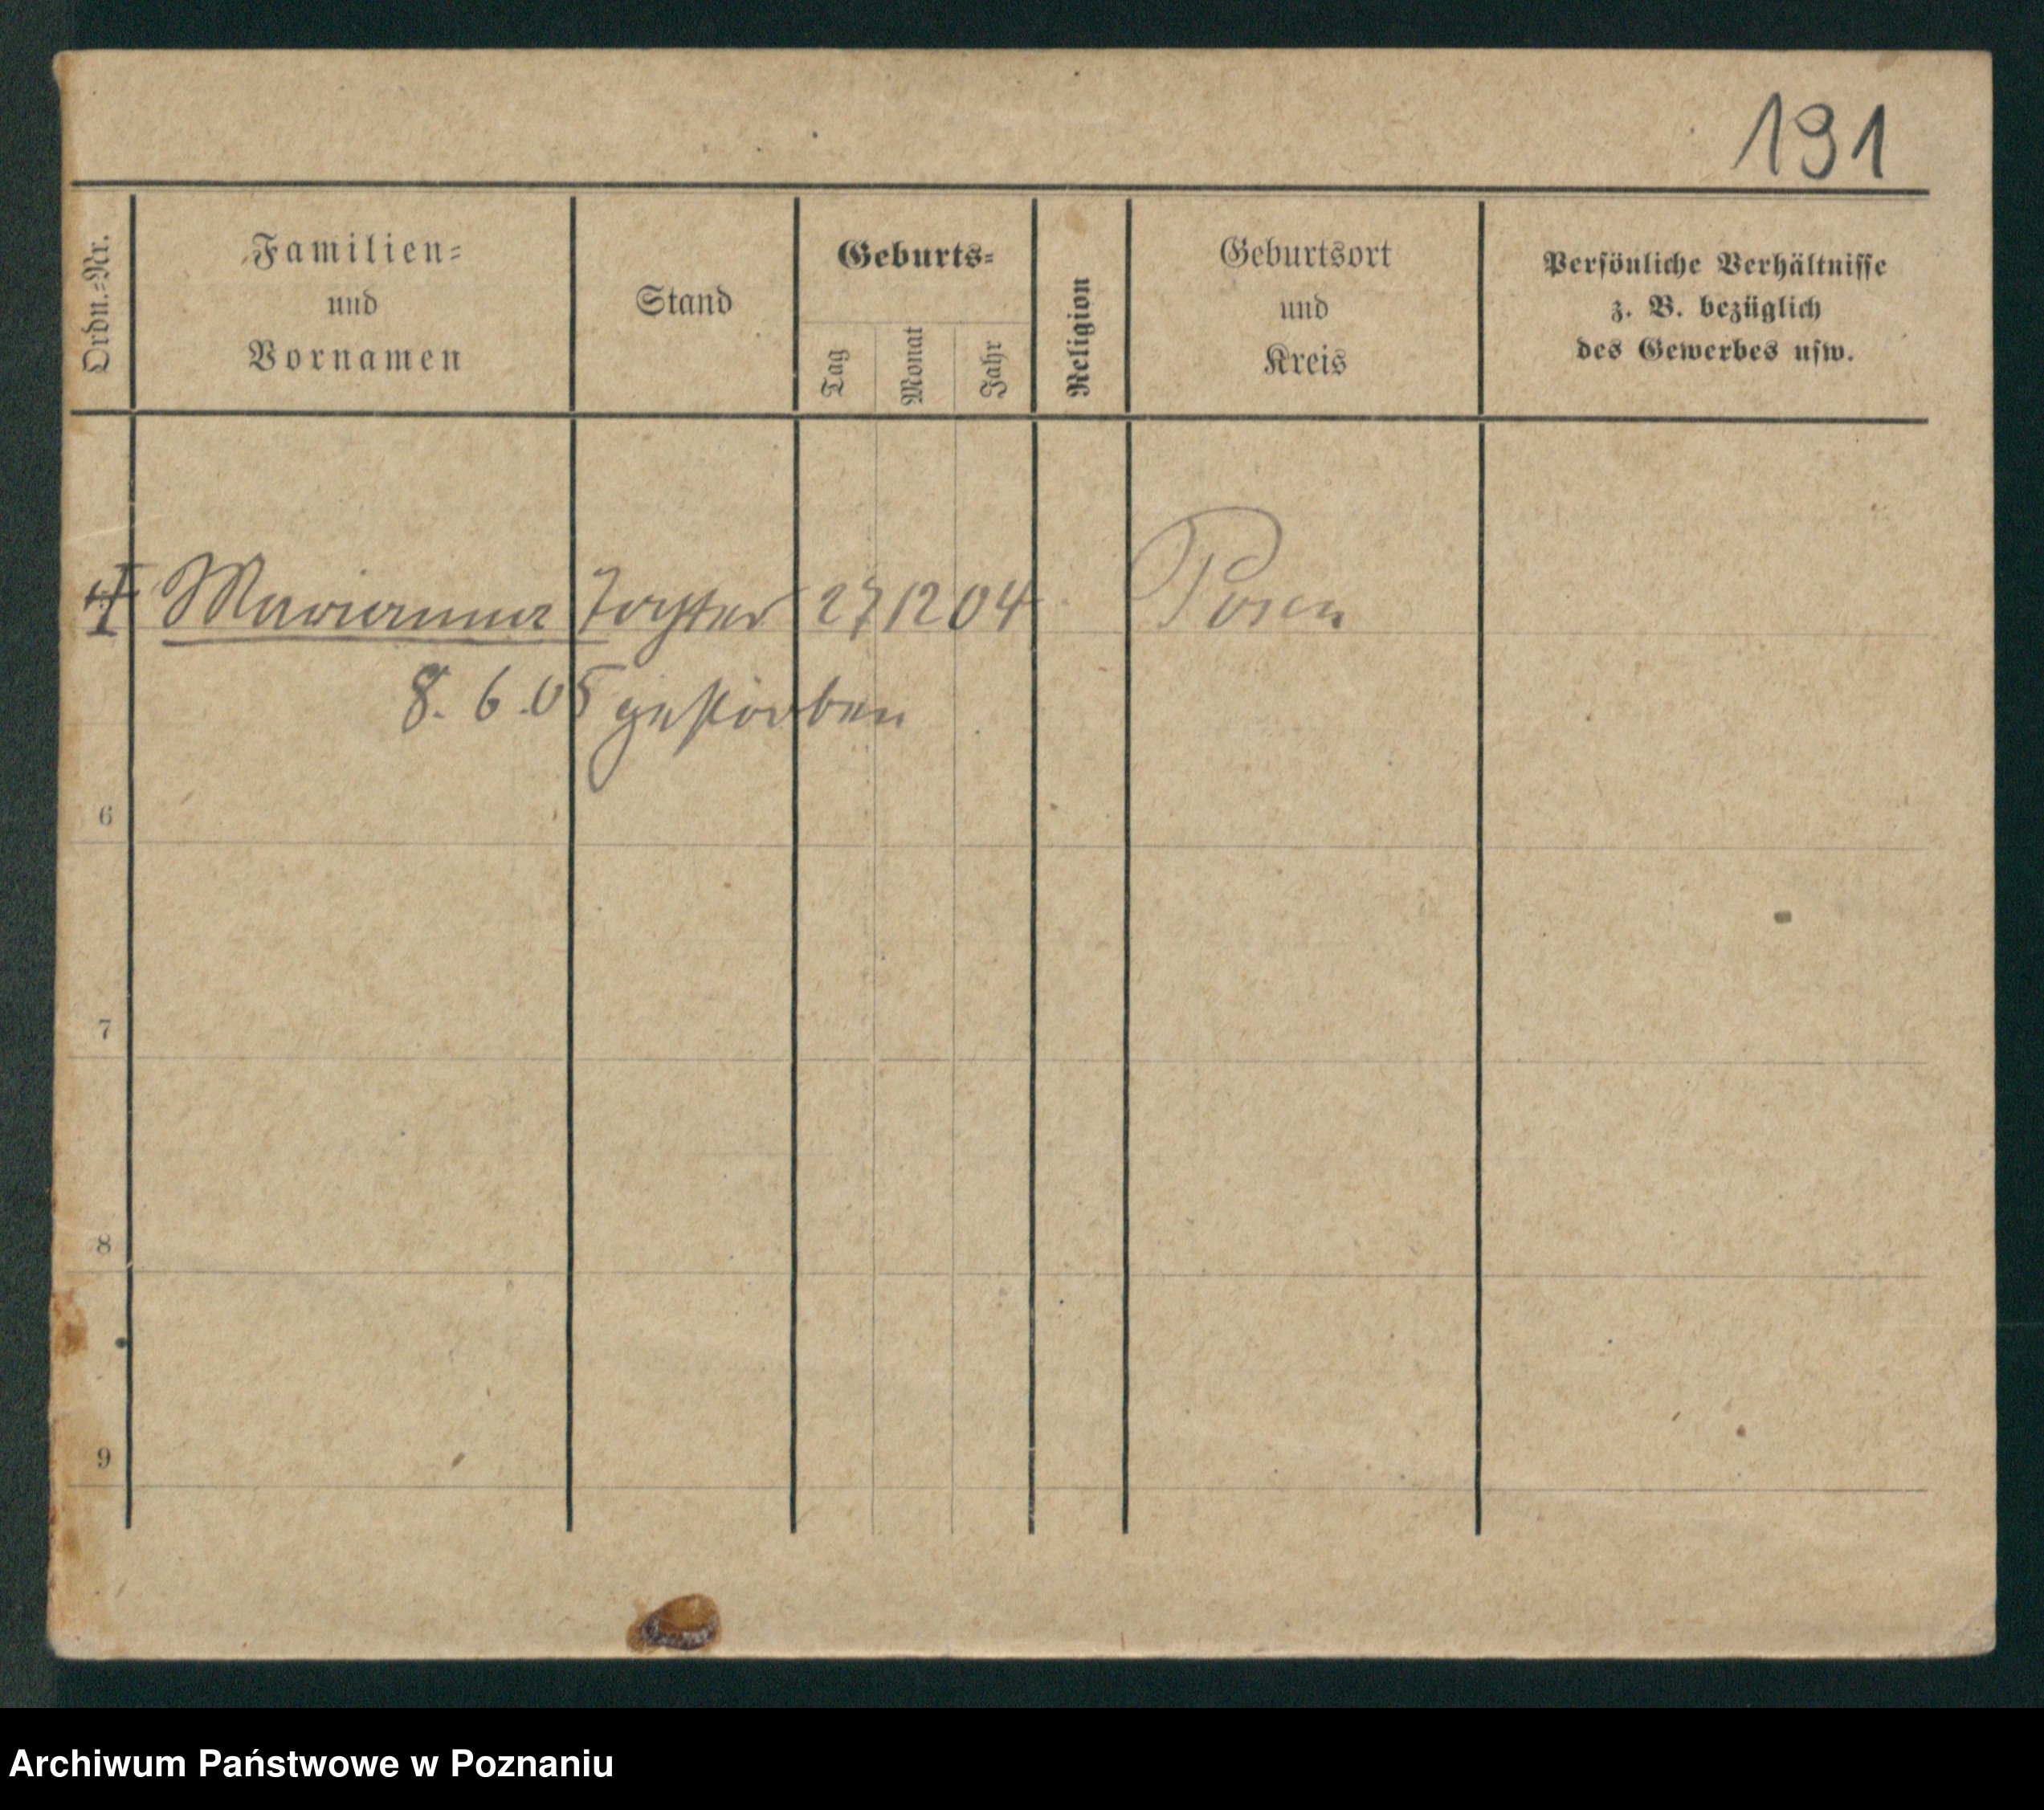 191
Ordn.=Nr.
Familien=
und
Vornamen
Stand
Geburts=
Tag
Monat
Jahr
Religion
Geburtsort
und
Kreis
Persönliche Verhältnisse
z. B. bezüglich
des Gewerbes usw.
Marianna Tochter 27 12 04 Posen
8. 6. 05 gestorben
6
7
8
9
Archiwum Państwowe w Poznaniu